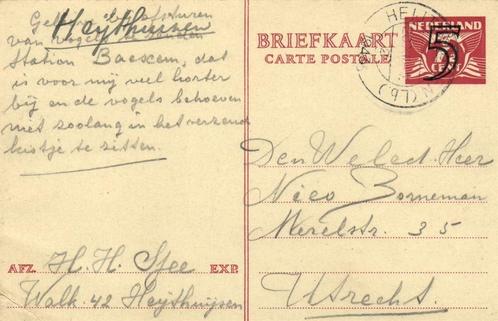 Heythuysen
van vogels
Station Baexem, dat
is voor mij veel korter
bij en de vogels behoeven
niet zoolang in het verzend
kistje te zitten.
BRIEFKAART
CARTE POSTALE
NEDERLAND
5
CENT
HEY
N (Lb)
Den Weled. Heer
Nico Borneman
Merelstr. 35
Utrecht.
AFZ. H. H. Sfee EXP.
Walk. 42 Heythuijsen